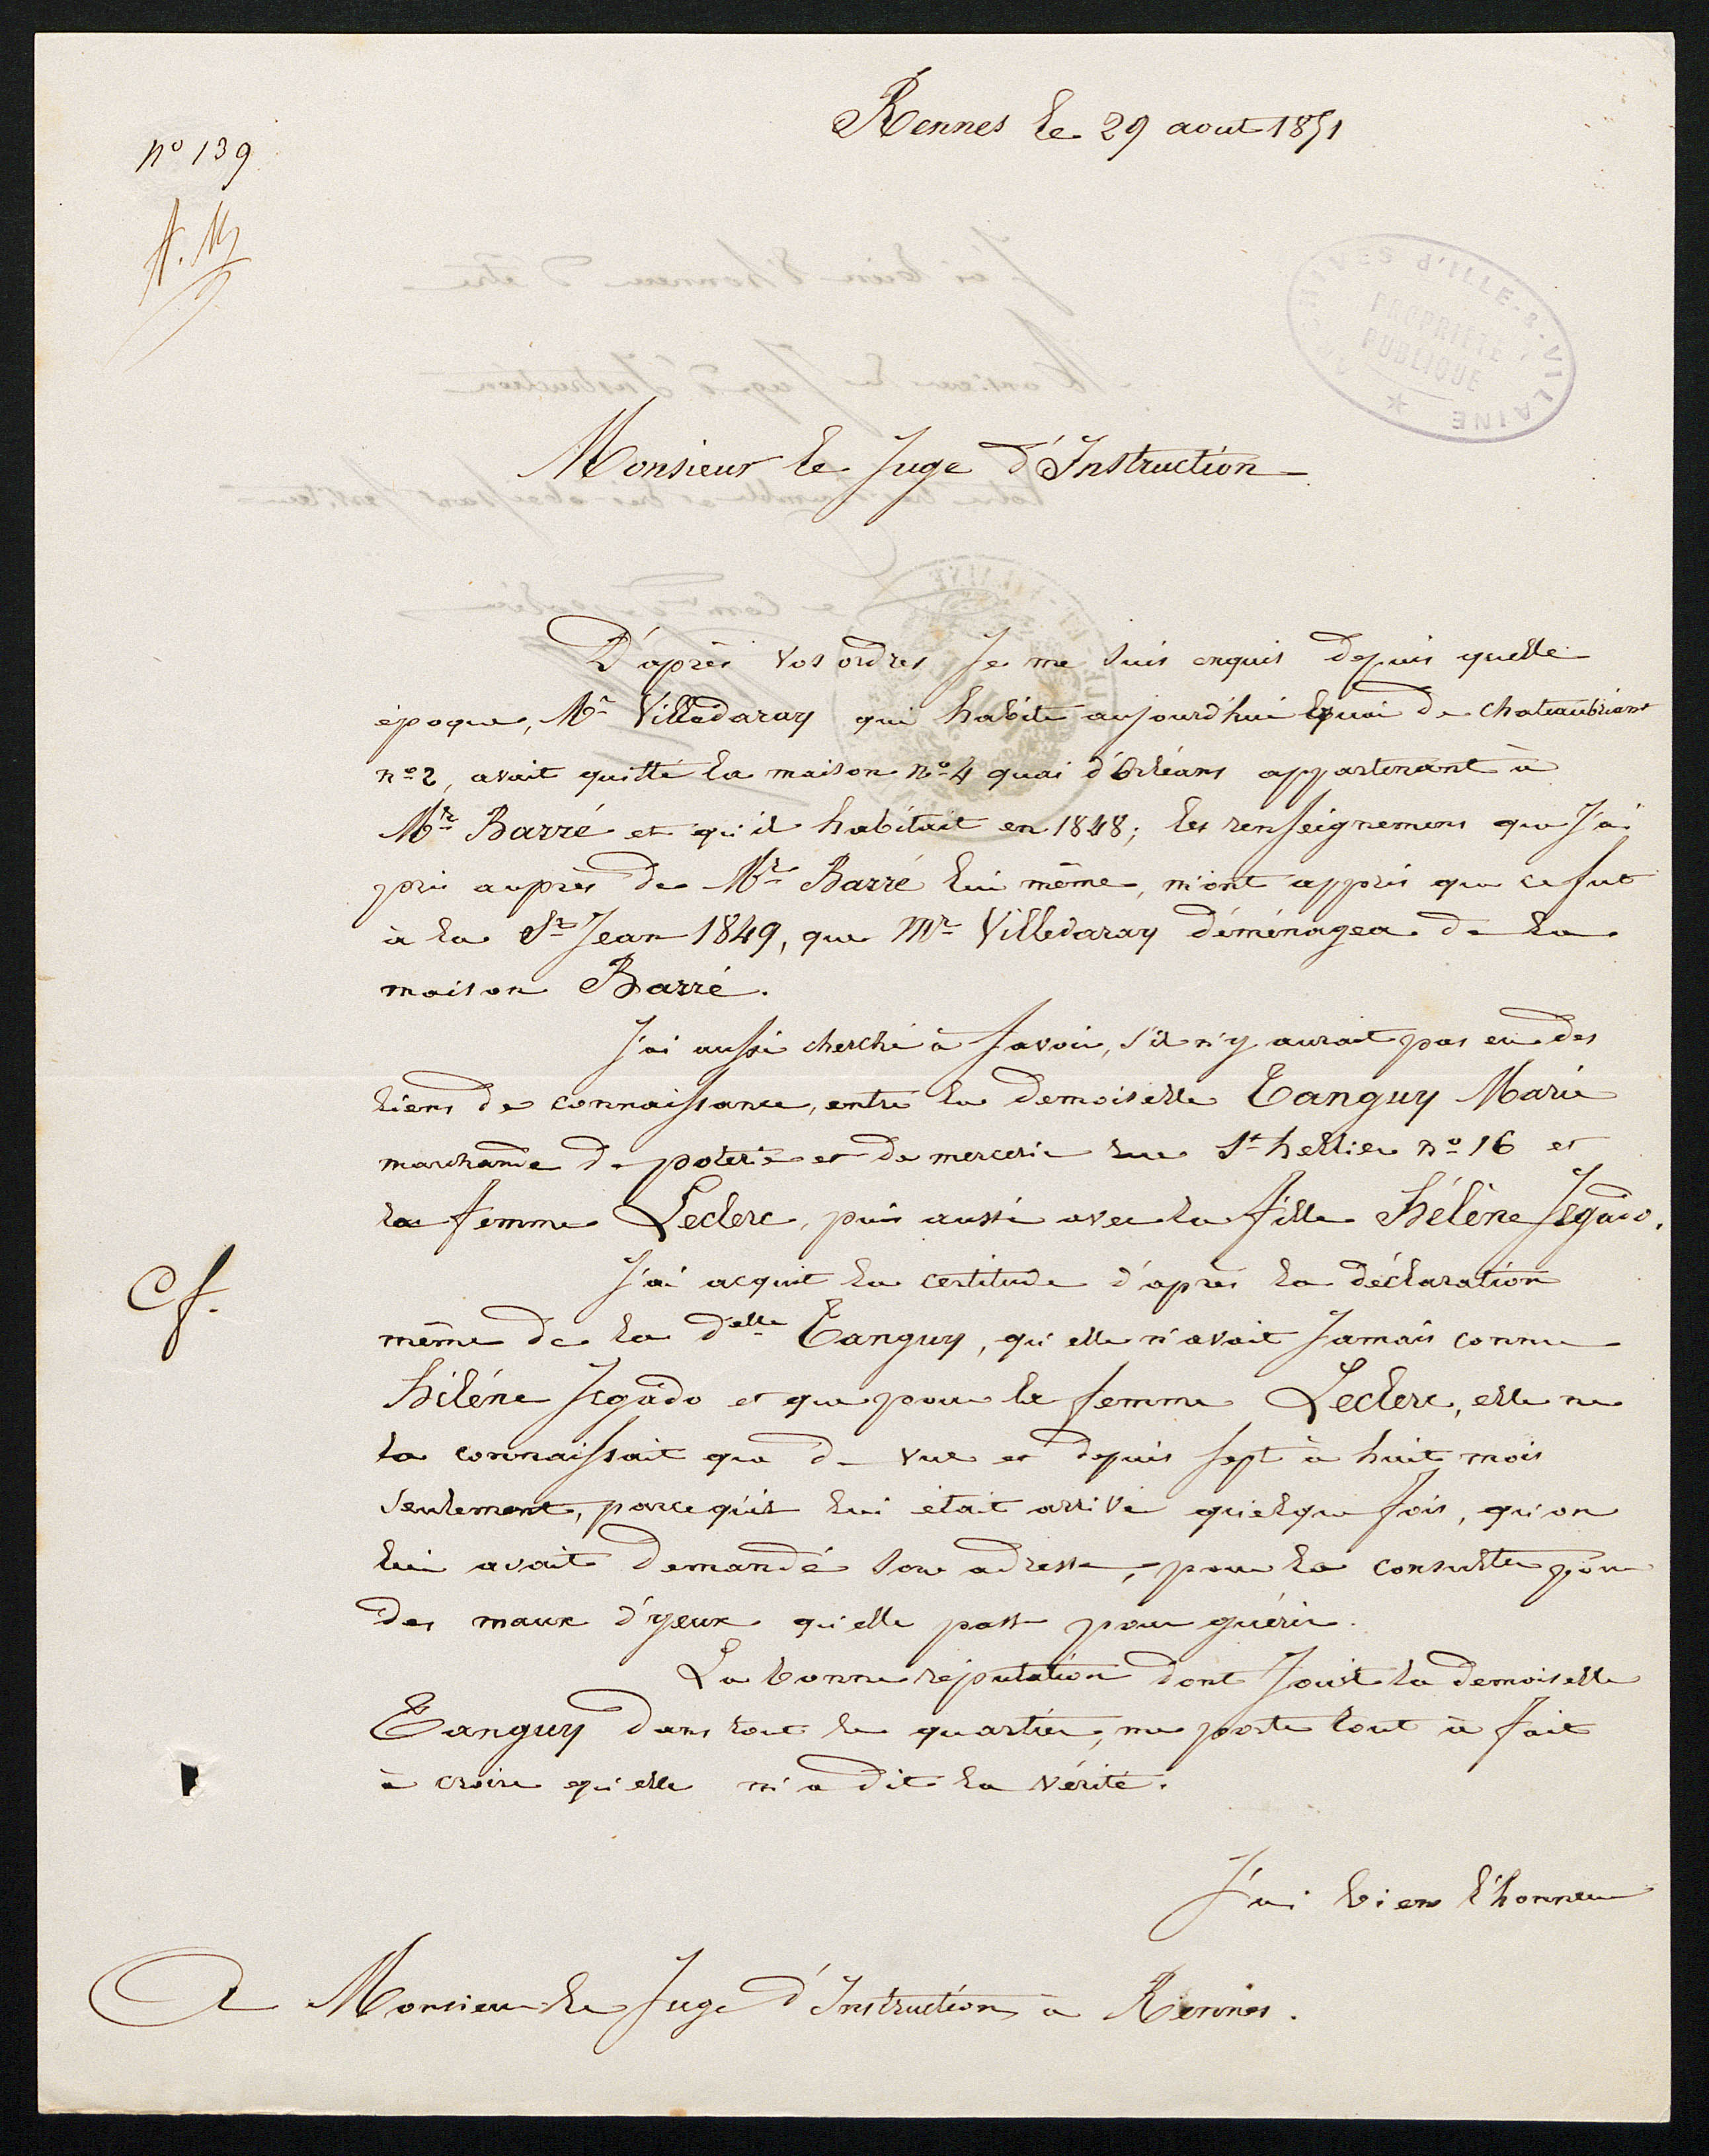 Rennes le 29 aout 1851
n° 139
Monsieur le Juge d'Instruction
D'après vos ordres Je me suis enquis depuis quelle
époque, Mr Villedaray qui habite aujourd'hui quai de Chateaubriant
n° 2, avait quitté la maison n° 4 quai d'Orléans appartenant à
Mr Barré et qu'il habitait en 1848; les renseignemens que J'ai
pris auprès de Mr Barré lui même, m'ont appris que ce fut
à la St Jean 1849, que Mr Villedaray déménagea de la
maison Barré.
J'ai aussi cherché à savoir, s'il n'y aurait pas eu des
liens de connaissance, entre la demoiselle Tanguy Marie
marchande de poterie et de mercerie rue St hellier n° 16 et
la femme Leclerc, puis aussi avec la fille Hélène Jegado.
J'ai acquit la certitude d'après la déclaration
Cf.
même de la delle Tanguy, qu'elle n'avait Jamais connu
Héléne Jegado et que pour la femme Leclerc, elle ne
la connaissait que de vue et depuis sept à huit mois
seulement, parcequ'il lui était arrivé quelque fois, qu'on
lui avait demandé son adresse, pour la consulter pour
des maux d'yeux qu'elle passe pour guérir.
La bonne réputation dont Jouit la demoiselle
Tanguy dans tout le quartier, me porte tout à fait
à croire qu'elle m'a dit la vérité.
J'ai bien l'honneur
A Monsieur le Juge d'Instruction à Rennes.
ARCHIVES D'ILLE-&-VILAINE
PROPRIÉTÉ
PUBLIQUE